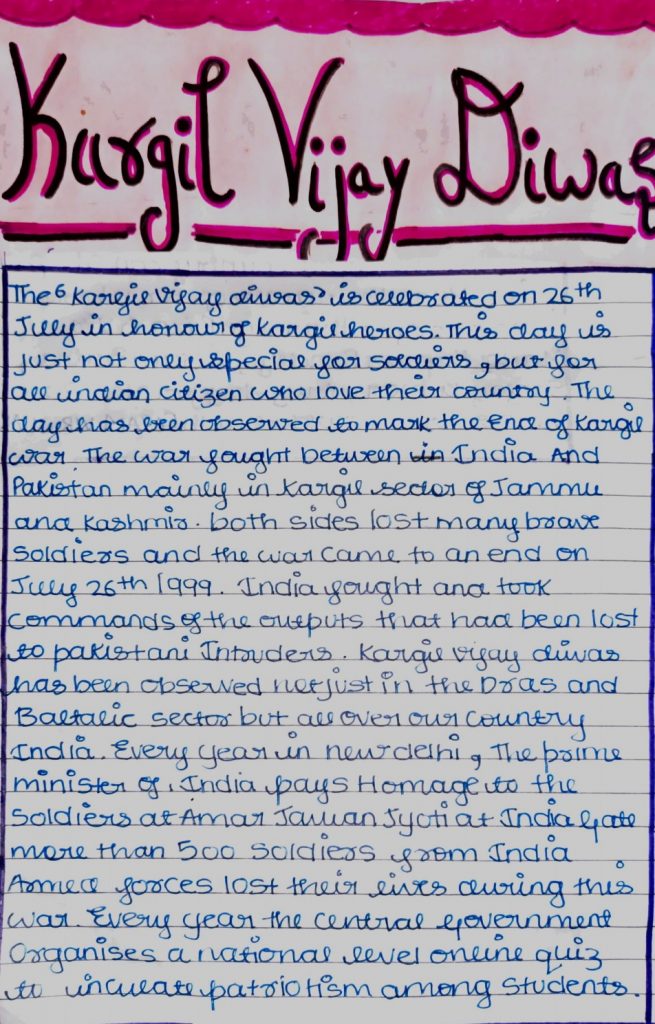 Kargil Vijay Diwas
The 'Kargil vijay diwas' is celebrated on 26th
July in honour of kargil heroes. This day is
just not only special for soldiers, but for
all indian citizen who love their country. The
day has been observed to mark the End of Kargil
war. The war fought between in India And
Pakistan mainly in Kargil sector of Jammu
and Kashmir. both sides lost many brave
soldiers and the war came to an end on
July 26th 1999. India fought and took
commands of the outputs that had been lost
to pakistani Intruders. Kargil vijay diwas
has been observed not just in the Dras and
Baltalic sector but all over our country
India. Every year in new delhi, The prime
minister of, India pays Homage to the
soldiers at Amar Jawan Jyoti at India Gate
more than 500 soldiers from India
Armed forces lost their lives during this
war. Every year the central government
Organises a national level online quiz
to inculcate patriotism among students.